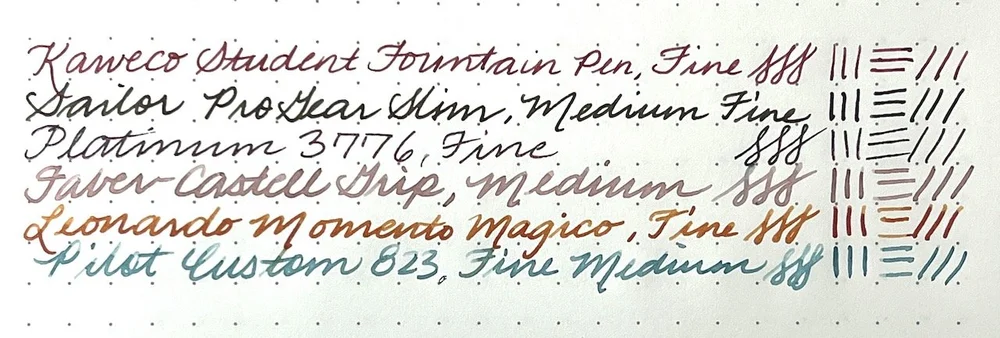 Kaweco Student Fountain Pen, Fine
Sailor Pro Gear Slim, Medium Fine
Platinum 3776, Fine
Faber-Castell Grip, Medium
Leonardo Momento Magico, Fine
Pilot Custom 823, Fine Medium